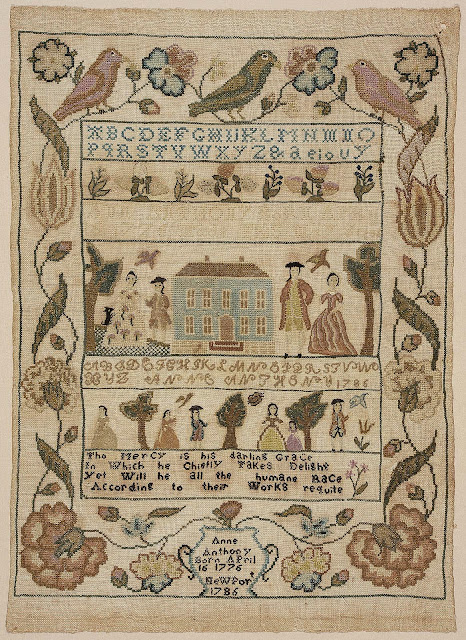 ABCDEFGHIJKLMNO
PQRSTVWXYZ & a eiouy
ABCDEFGHIKLMNOPQRSTVW
XYZ ANNE ANTHONY 1786
Tho Mercy is his darling Grace
In Which he Chiefly Takes Delight
Yet Will he all the humane Race
According to their Works requite
Anne
Anthony
Born April
16 1776
Newport
1786